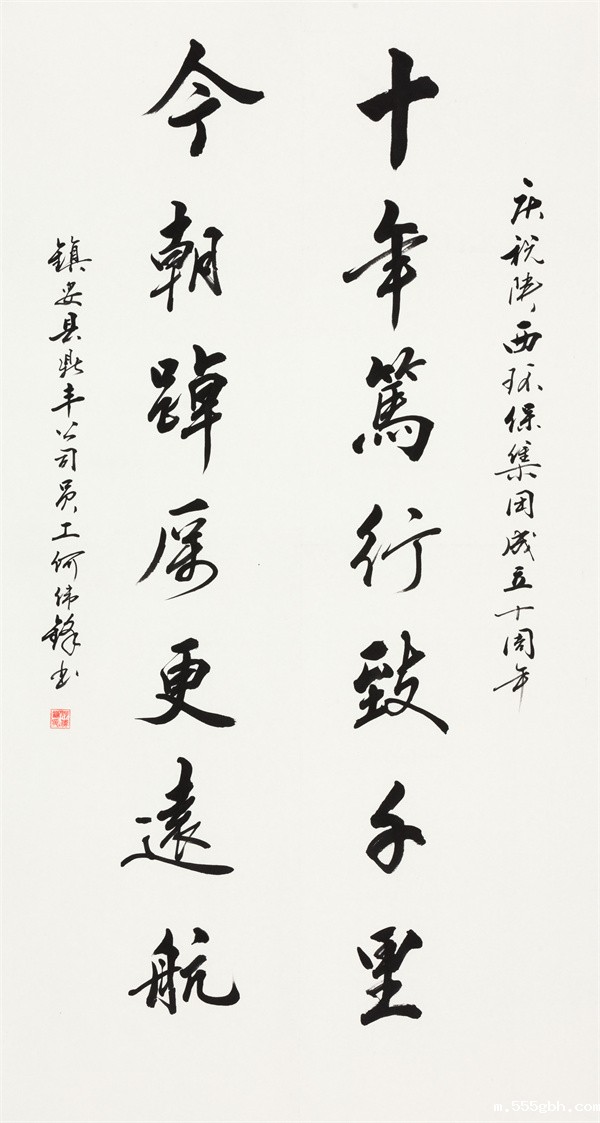 庆祝陕西环保集团成立十周年
十年篤行致千里
今朝踔厉更遠航
鎮安县鼎丰公司员工何伟鋒书
m.555gbh.com